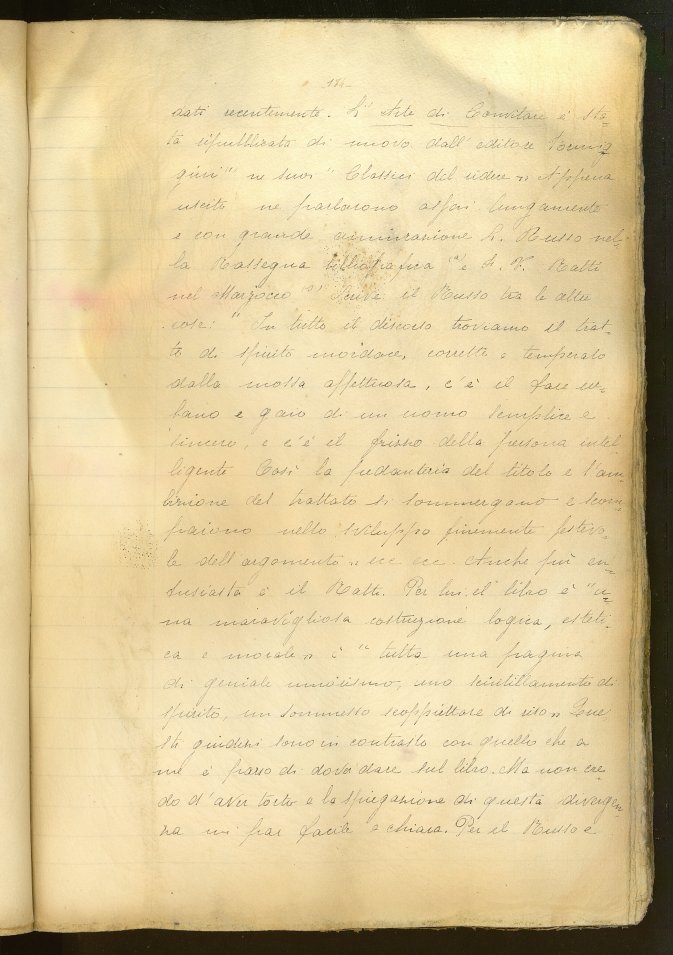 -174-
dati recentemente. L' Arte di Convitare è sta-
ta ripubblicata di nuovo dall' editore Formig-
gini" ne suoi "Classici del ridere„ Appena
uscita ne parlarono assai lungamente
e con grande ammirazione L. Russo nel-
la Rassegna bibliografica e F. V. Ratti
nel Marzocco Scrive il Russo tra le altre
cose: "In tutto il discorso troviamo il trat-
to di spirito mordace, corretto e temperato
dalla mossa affettuosa, c'è il fare ur-
bano e gaio di un uomo semplice e
sincero, e c'è il frizzo della persona intel-
ligente Così la pedanteria del titolo e l'am-
bizione del trattato si sommergano e scom-
paiono nello sviluppo finemente festevo-
le dell'argomento„ ecc ecc. Anche più en-
tusiasta è il Ratti. Per lui il libro è "u-
na maravigliosa costruzione logica, esteti-
ca e morale„ è "tutta una pagina
di geniale umorismo, uno scintillamento di
spirito, un sommesso scoppiettare di riso„ Que
sti giudizi sono in contrasto con quello che a
me è parso di dover dare sul libro. Ma non cre-
do d'aver torto e la spiegazione di questa divergen-
za mi par facile e chiara. Per il Russo e